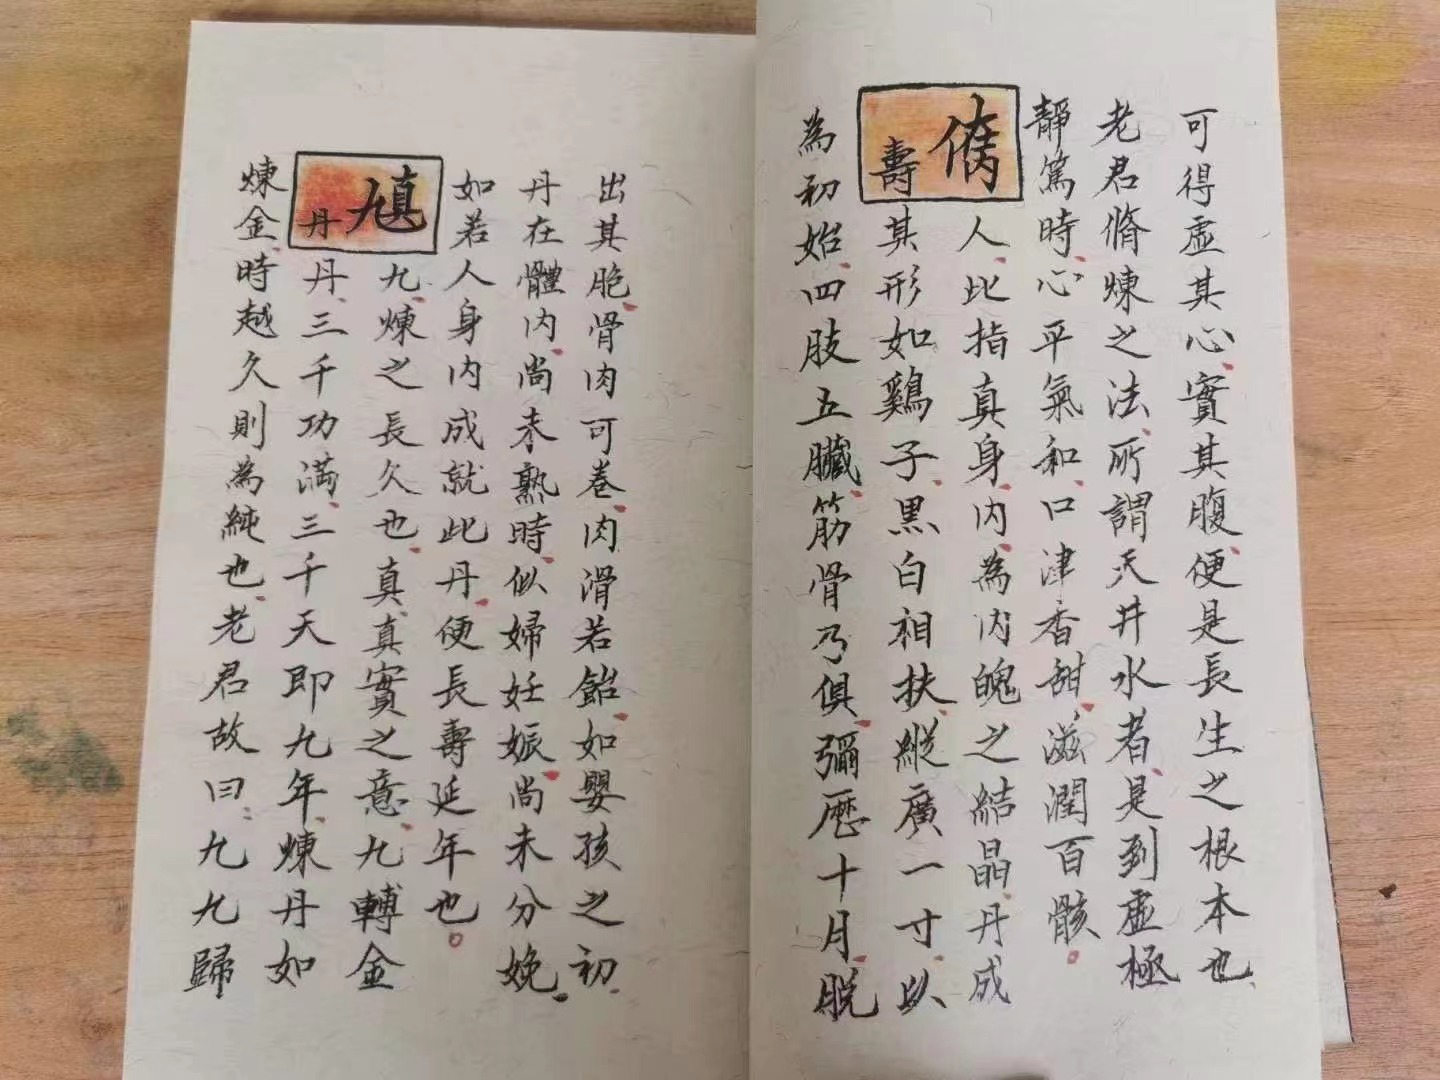 可得虛其心實其腹便是長生之根本也
老君脩煉之法所謂天井水者是到虛極
靜篤時心平氣和口津香甜滋潤百骸
人比指真身內為內魄之結晶丹成
壽其形如鷄子黑白相扶縱廣一寸以
為初始四肢五臟筋骨乃俱彌歷十月脫
出其胞骨肉可卷肉滑若飴如嬰孩之初
丹在體內尚未熟時似婦妊娠尚未分娩
如若人身內成就此丹便長壽延年也
九煉之長久也真真實之意九轉金
丹丹三千功滿三千天即九年煉丹如
煉金時越久則為純也老君故曰九九歸